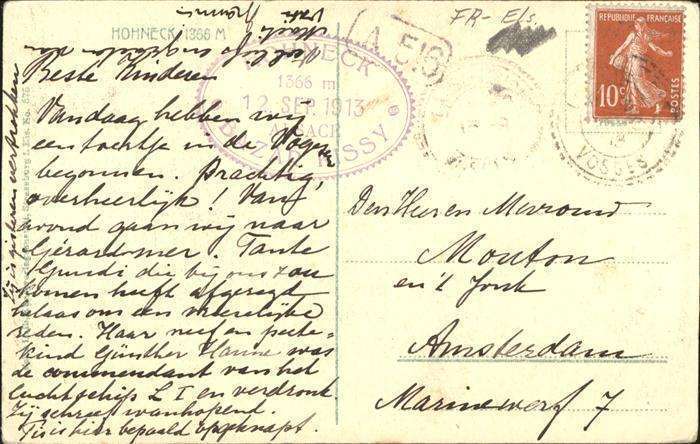 HOHNECK 1366 M
HOHNECK
1366 m
12. SEP. 1913
ALSACE
BAZAR
A 516
FR-Els.
REPUBLIQUE FRANÇAISE
10c
POSTES
VOSGES
Beste Kinderen
Vandaag hebben wij
een toertje in de Vogezen
begonnen. Prachtig,
overheerlijk! Van
avond gaan wij naar
Gérardmer. Tante
Gundi die bij ons zou
komen heeft afgezegd
helaas om een vreeselijke
reden. Haar neef en peete-
kind Günther Hanne was
de commandant van het
luchtschip L I en verdronk.
Zij schreef wanhopend.
Fis is hier bepaald opgeknapt.
Zij is gisteren vertrokken
Den Heer en Mevrouw
Mouton
en 't Jonk
Amsterdam
Marinewerf 7